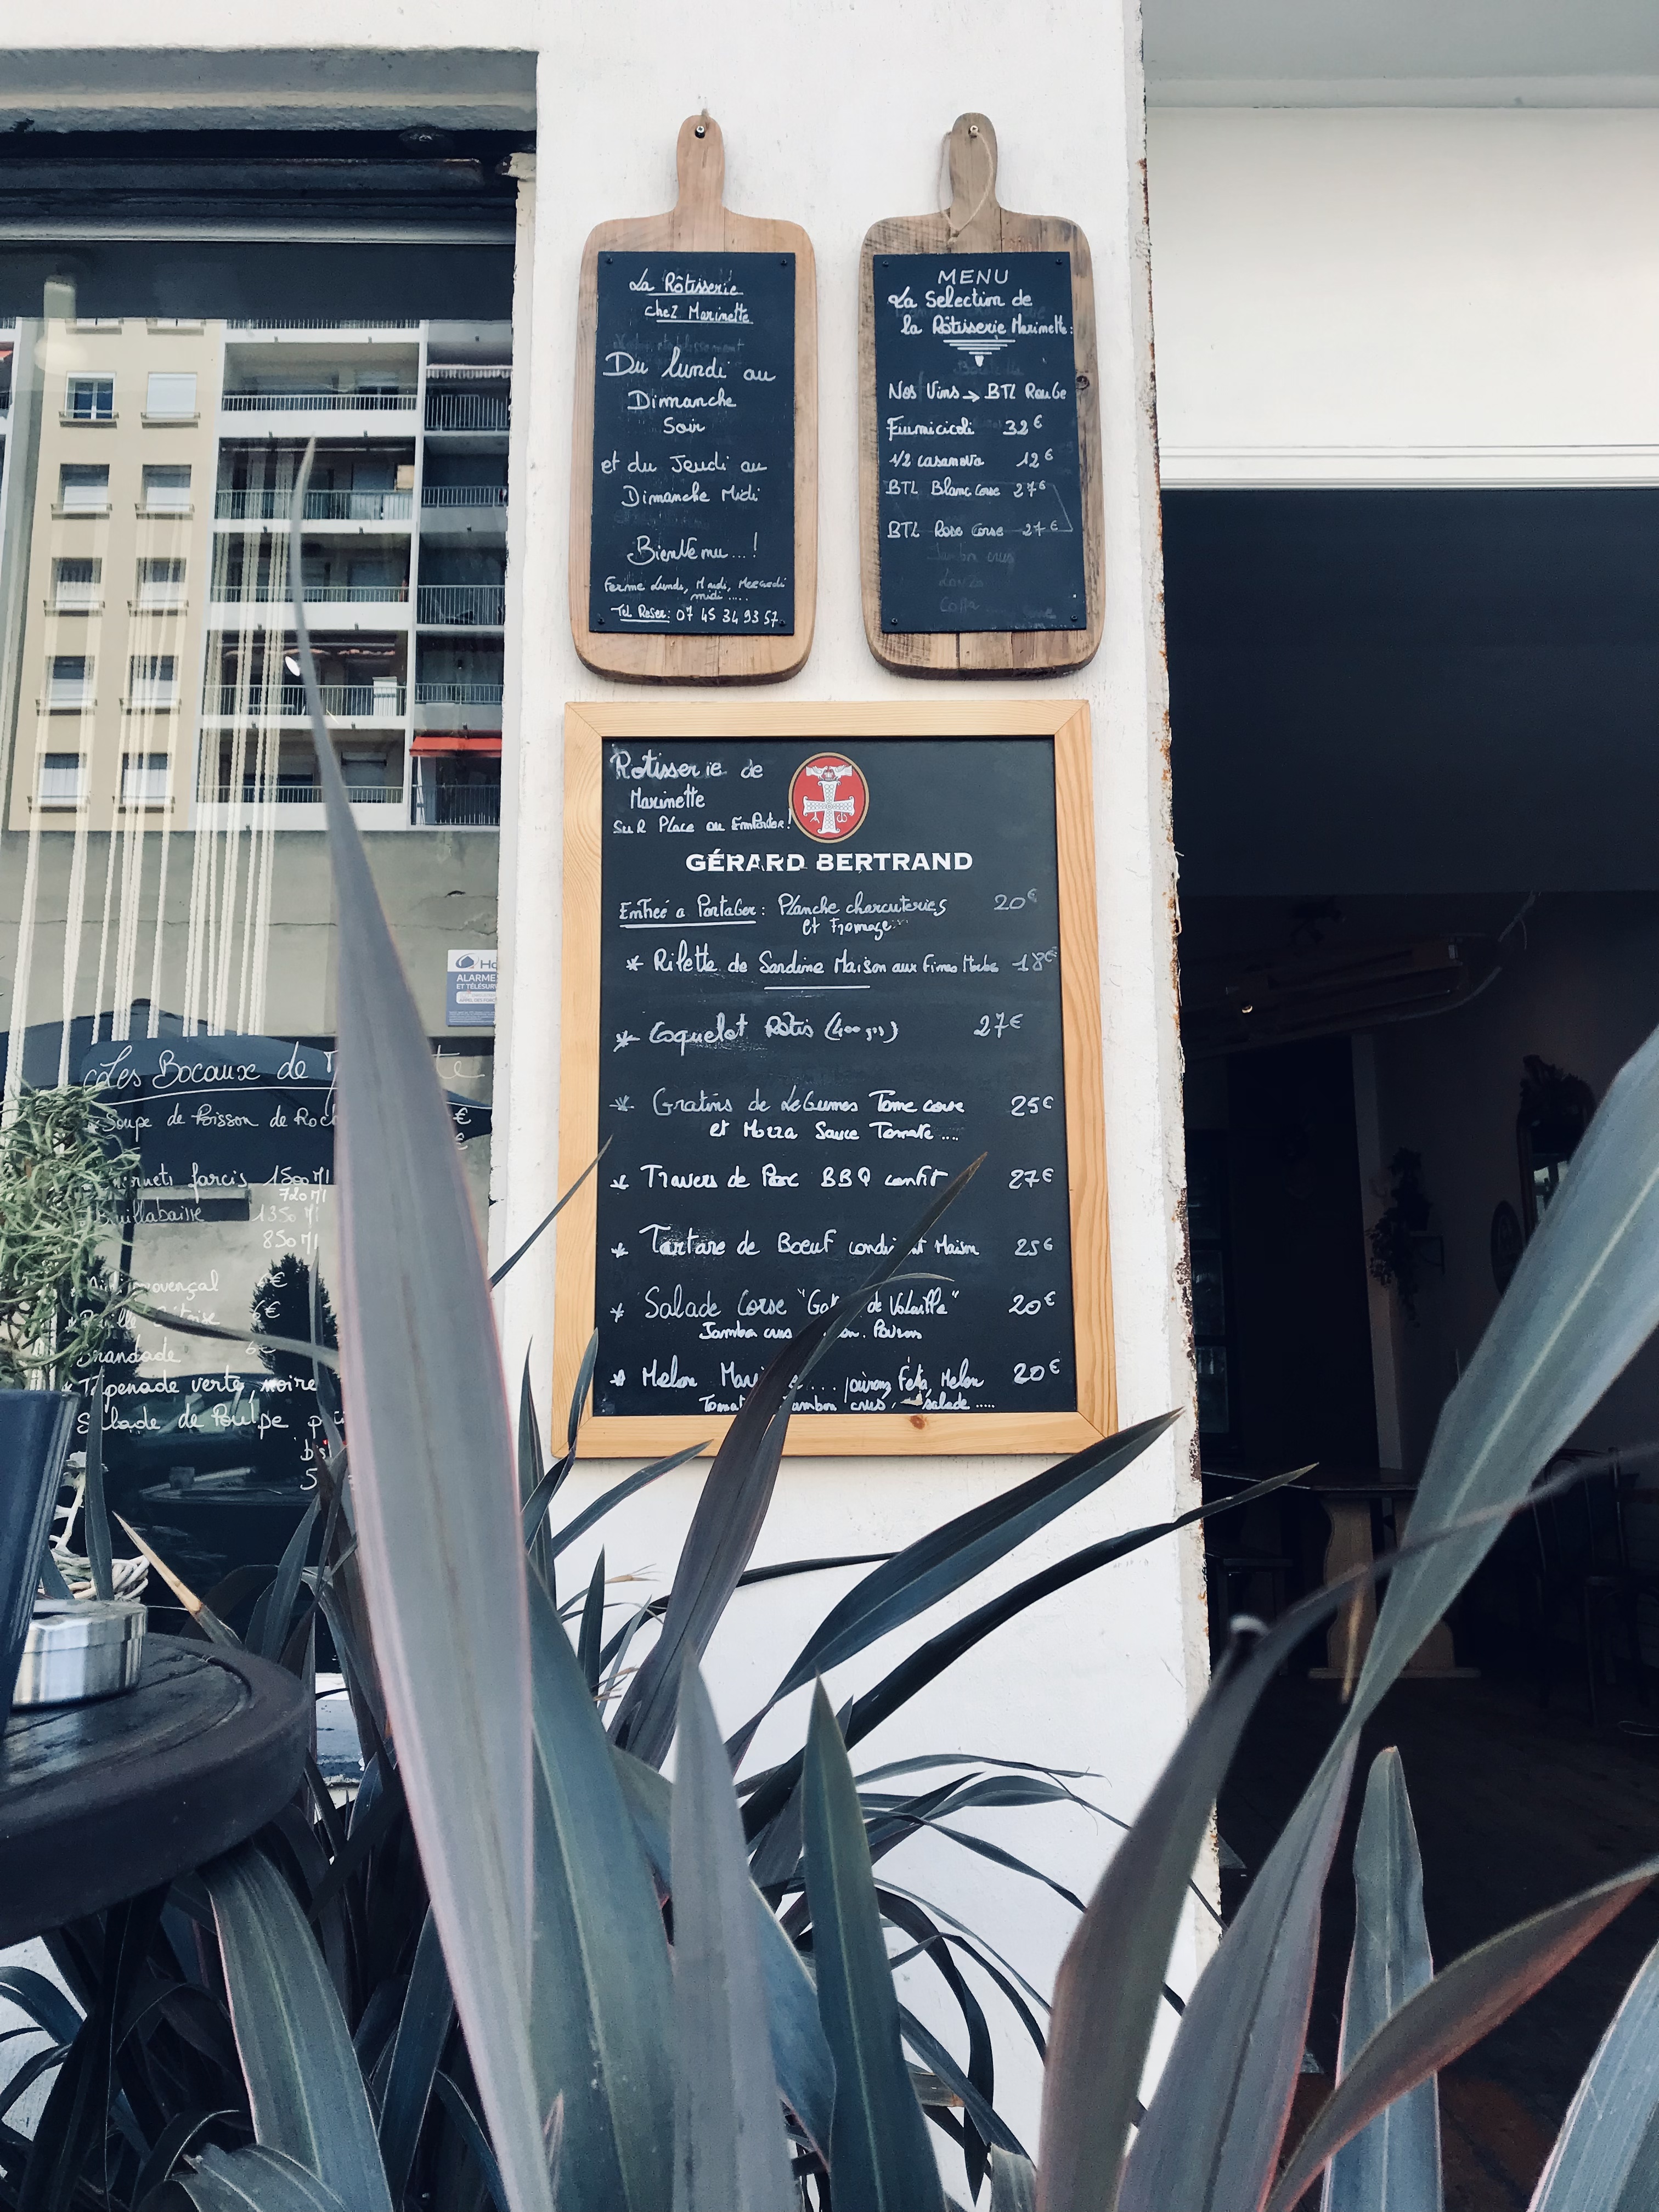 La Rôtisserie
chez Marinette
Du lundi au
Dimanche
Soir
et du Jeudi au
Dimanche Midi
Bienvenu...!
Fermé Lundi, Mardi, Mercredi
midi.....
Tel Reser: 07 45 34 93 57
MENU
La Selection de
la Rôtisserie Marinette:
Nos Vins → BTL Rouge
Fiumicicoli 32€
1/2 casanova 12€
BTL Blanc Corse 27€
BTL Rosé Corse 27€
Jambon crus
Coppa
Rotisserie de
Marinette
SuR Place ou Emporter!
GÉRARD BERTRAND
Entreé a Partager: Planche charcuteries 20€
et Fromage...
* Rilette de Sardine Maison aux Fines Herbes 18€
* Coquelet Rôtis (400 grs) 27€
* Gratins de LeGumes Tome corse 25€
et Mozza Sauce Tomate ...
* Travers de Porc BBQ confit 27€
* Tartare de Boeuf Maison 25€
* Salade Corse de Volaille" 20€
Jambon crus
* Melon Feta, Melon 20€
crus, salade .....
Les Bocaux de
Soupe de Poisson de
farcis 1500 Ml
720 Ml
Bouillabaisse 1350 Ml
850 Ml
6€
6€
Brandade 6€
Tapenade verte, noire
Salade de Poulpe
ALARME
ET TÉLÉSURV